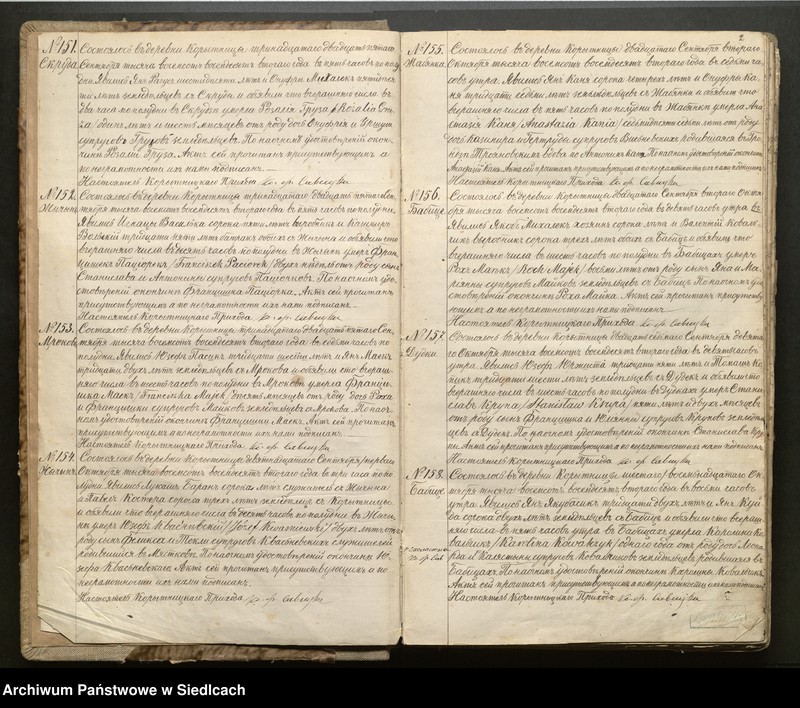 №151.
Скруда
Состоялось въ деревни Корытница тринадцатаго двадцать пятаго
Сентября тысяча восемсотъ восемдесятъ втораго года въ часовъ по полу
дни. Явились Янъ шестидесяти лѣтъ и Онуфри Михалекъ пятидеся
ти лѣтъ земледѣльцы съ Скруда и объявили что вчерашняго числа въ
два часа по полудни въ Скрудзи умерла Розалія Груза /Rozalia Gru
za/ одинъ лѣтъ и шесть мѣсяцевъ отъ роду дочь Онуфрія и
супруговъ Грузовъ земледѣльцевъ. По наочномъ удостовѣреніи окон
чины Розаліи Груза. Актъ сей прочитанъ присутствующимъ а
по неграмотности ихъ нами подписанъ.
Настоятель Корытницкаго Прихода
№152.
Жигня
Состоялось въ деревни Корытница тринадцатаго двадцать пятаго Сен
тября тысяча восемсотъ восемдесятъ втораго года въ пять часовъ по полудни.
Явились сорока пяти лѣтъ выробникъ и Кацперъ
тридцати лѣтъ обихъ съ Жигня и объявили что
вчерашняго числа въ десять часовъ по полудни въ Жигнѣ умеръ Фран
цишекъ Паціорекъ /Franciszek Paciorek/ двухъ недѣль отъ роду сынъ
Станислава и Антонины супруговъ Паціорковъ. По наочномъ удо
стовѣреніи окончины Францишка Пацiорка. Актъ сей прочитанъ
присутствующимъ а по неграмотности ихъ нами подписанъ.
Настоятель Корытницкаго Прихода
№153.
Мроковъ
Состоялось въ деревни Корытница тринадцатаго двадцать пятаго Сен
тября тысяча восемсотъ восемдесятъ втораго года въ седьмъ часовъ по
полудни. Явились Юзефъ Пасикъ тридцати шести лѣтъ и Янъ Маекъ
тридцати двухъ лѣтъ земледѣльцы съ Мрокова и объявили что вчераш
няго числа въ шесть часовъ по полудни въ Мроковѣ умерла Франци
шка Маекъ /Franciszka Majek/ десять мѣсяцевъ отъ роду дочь Роха
и Францишки супруговъ Майковъ земледѣльцевъ съ Мрокова. По наоч
номъ удостовѣреніи окончины Францишки Маекъ. Актъ сей прочитанъ
присутствующимъ а по неграмотности ихъ нами подписанъ.
Настоятель Корытницкаго Прихода
№154.
Жигня
Состоялось въ деревни Корытница девятнадцатаго Сентября /перваго
Октября тысяча восемсотъ восемдесятъ втораго года въ три часа по по
лудни. Явились Лукашъ Баранъ сорока лѣтъ служитель съ Жигня
и Павелъ Костера сорока трехъ лѣтъ земледѣлецъ съ Корытницы
и объявили что вчерашняго числа въ десять часовъ по полудни въ Жиг
нѣ умеръ Юзефъ Квасневскій /Józef Kwaśniewski/ двухъ лѣтъ отъ
роду сынъ Феликса и Теклы супруговъ Квасневскихъ служителей
родившійся въ По наочномъ удостовѣреніи окончины Ю
зефа Квасневскаго Актъ сей прочитанъ присутствующимъ а по
неграмотности ихъ нами подписанъ.
Настоятель Корытницкаго Прихода
2
№155.
Жабянка
Состоялось въ деревни Корытницы двадцатаго Сентября втораго
Октября тысяча восемсотъ восемдесятъ втораго года въ седьмъ ча
совъ утра. Явились Янъ Каня сорока четырехъ лѣтъ и Онуфры Ка
ня тридцати седьми лѣтъ земледѣльцы съ Жабянки и объявили что
вчерашняго числа въ пять часовъ по полудни въ Жабянки умерла Ана
стазія Каня /Anastazia Kania/ седьмдесяти седьми лѣтъ отъ роду
дочь Казимира и Гертруды супруговъ родившаяся въ
вдова по Антонимъ Каня. По наочномъ удостовѣреніи окончины
Анастазіи Каня. Актъ сей прочитанъ присутствующимъ а по неграмотности ихъ нами подписанъ
Настоятель Корытницкаго Прихода
№156.
Бабице
Состоялось въ деревни Корытница двадцатаго Сентября втораго Октя
бря тысяча восемсотъ восемдесятъ втораго года въ девять часовъ утра.
Явились Якобъ Михалекъ сорока лѣтъ и Валентій Коваль
чикъ сорока трехъ лѣтъ обихъ съ Бабицъ и объявили что
вчерашняго числа въ шесть часовъ по полудни въ Бабицахъ умеръ
Рохъ Маекъ /Roch Majek/ восьми лѣтъ отъ роду сынъ Яна и Ма
ріянны супруговъ Майковъ земледѣльцевъ съ Бабицъ. По наочномъ удо
стовѣреніи окончины Роха Майка. Актъ сей прочитанъ присутству
ющимъ а по неграмотности ихъ нами подписанъ.
Настоятель Корытницкаго Прихода
№157.
Дудки
Состоялось въ деревни Корытница двадцать седьмаго Сентября девята
го Октября тысяча восемсотъ восемдесятъ втораго года въ девять часовъ
утра. Явились Юзефъ тридцати пяти лѣтъ и Томашъ
тридцати шести лѣтъ земледѣльцы съ Дудекъ и объявили что
вчерашняго числа въ шесть часовъ по полудни въ Дудкахъ умеръ Стани
славъ Крупа /Stanisław Krupa/ пяти лѣтъ и двухъ мѣсяцевъ
отъ роду сынъ Францишка и Юліянны супруговъ Круповъ земледѣль
цевъ съ Дудекъ. По наочномъ удостовѣреніи окончины Станислава Кру
пы. Актъ сей прочитанъ присутствующимъ а по неграмотности ихъ нами подписанъ.
Настоятель Корытницкаго Прихода
№158.
Бабице
Состоялось въ деревни Корытница шестаго /восемнадцатаго Ок
тября тысяча восемсотъ восемдесятъ втораго года въ восьмъ часовъ
утра. Явились Янъ Якубакъ тридцати двухъ лѣтъ и Янъ
сорока двухъ лѣтъ земледѣльцы съ Бабицъ и объявили что вчераш
няго числа въ пять часовъ утра въ Бабицахъ умерла Каролина Ко
вальчикъ /Karolina Kowalczyk/ одного года отъ роду дочь
и супруговъ Ковальчиковъ земледѣльцевъ родившаяся въ
Бабицахъ. По наочномъ удостовѣреніи окончины Каролины Ковальчикъ.
Актъ сей прочитанъ присутствующимъ а по неграмотности ихъ нами подписанъ
Настоятель Корытницкаго Прихода
Archiwum Państwowe w Siedlcach